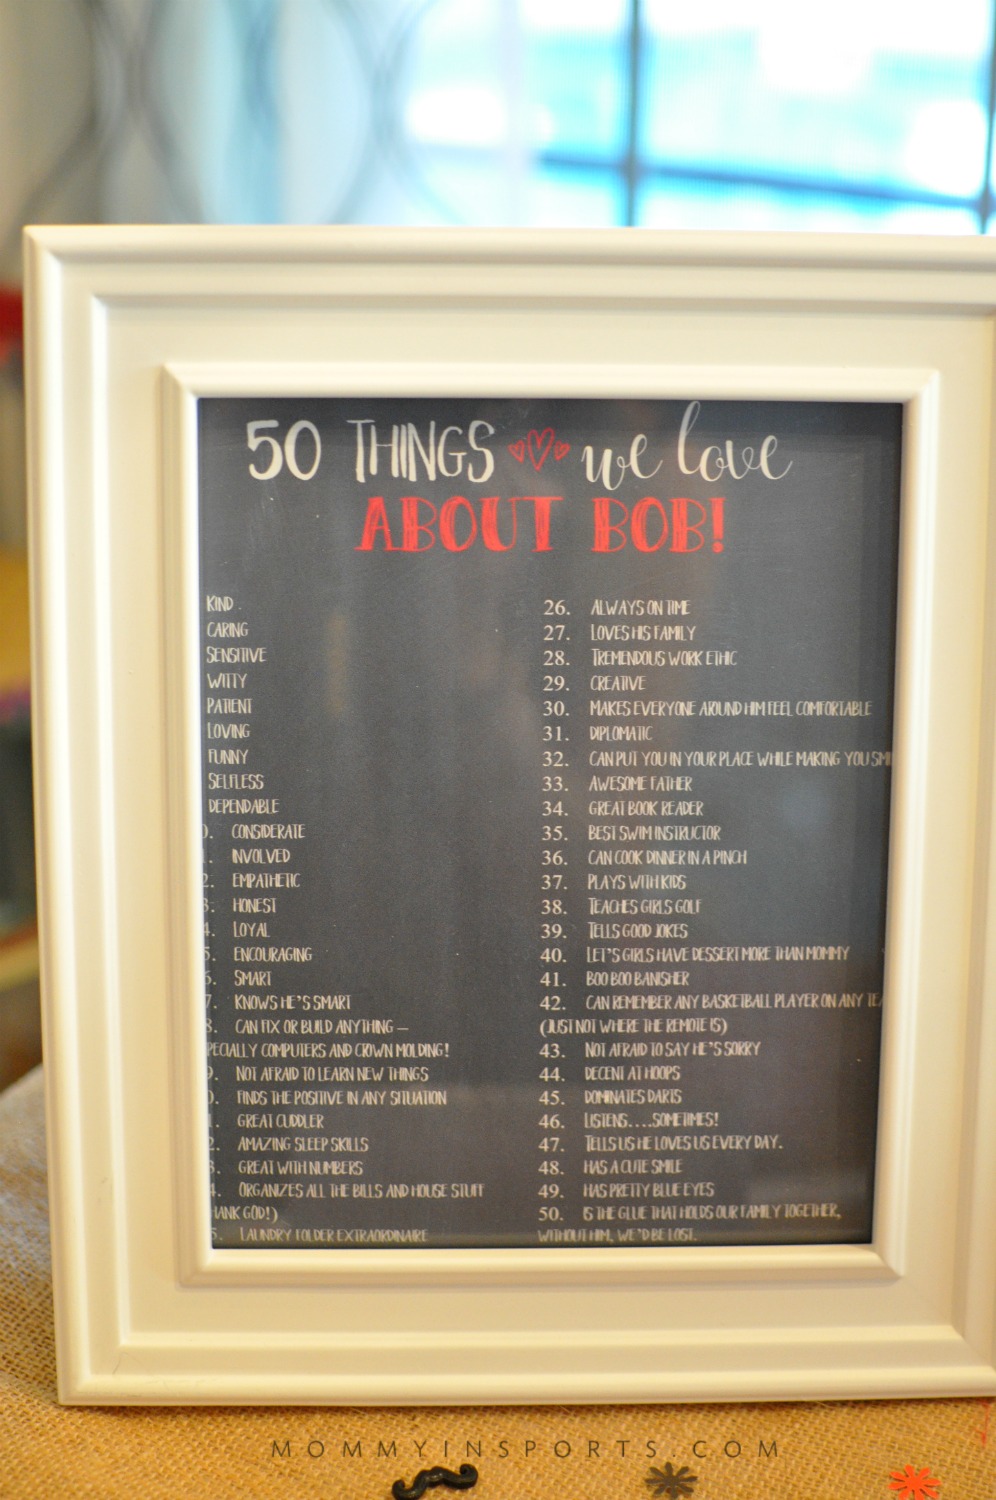 50 THINGS we love
ABOUT BOB!
KIND .
CARING
SENSITIVE
WITTY
PATIENT
LOVING
FUNNY
SELFLESS
DEPENDABLE
). CONSIDERATE
. INVOLVED
2. EMPATHETIC
3. HONEST
4. LOYAL
5. ENCOURAGING
6. SMART
7. KNOWS HE'S SMART
8. CAN FIX OR BUILD ANYTHING –
PECIALLY COMPUTERS AND CROWN MOLDING!
9. NOT AFRAID TO LEARN NEW THINGS
). FINDS THE POSITIVE IN ANY SITUATION
. GREAT CUDDLER
2. AMAZING SLEEP SKILLS
3. GREAT WITH NUMBERS
4. ORGANIZES ALL THE BILLS AND HOUSE STUFF
HANK GOD!)
5. LAUNDRY FOLDER EXTRAORDINAIRE
26. ALWAYS ON TIME
27. LOVES HIS FAMILY
28. TREMENDOUS WORK ETHIC
29. CREATIVE
30. MAKES EVERYONE AROUND HIM FEEL COMFORTABLE
31. DIPLOMATIC
32. CAN PUT YOU IN YOUR PLACE WHILE MAKING YOU SMI
33. AWESOME FATHER
34. GREAT BOOK READER
35. BEST SWIM INSTRUCTOR
36. CAN COOK DINNER IN A PINCH
37. PLAYS WITH KIDS
38. TEACHES GIRLS GOLF
39. TELLS GOOD JOKES
40. LET'S GIRLS HAVE DESSERT MORE THAN MOMMY
41. BOO BOO BANISHER
42. CAN REMEMBER ANY BASKETBALL PLAYER ON ANY TEA
(JUST NOT WHERE THE REMOTE IS)
43. NOT AFRAID TO SAY HE'S SORRY
44. DECENT AT HOOPS
45. DOMINATES DARTS
46. LISTENS....SOMETIMES!
47. TELLS US HE LOVES US EVERY DAY.
48. HAS A CUTE SMILE
49. HAS PRETTY BLUE EYES
50. IS THE GLUE THAT HOLDS OUR FAMILY TOGETHER,
WITHOUT HIM, WE'D BE LOST.
MOMMYINSPORTS.COM